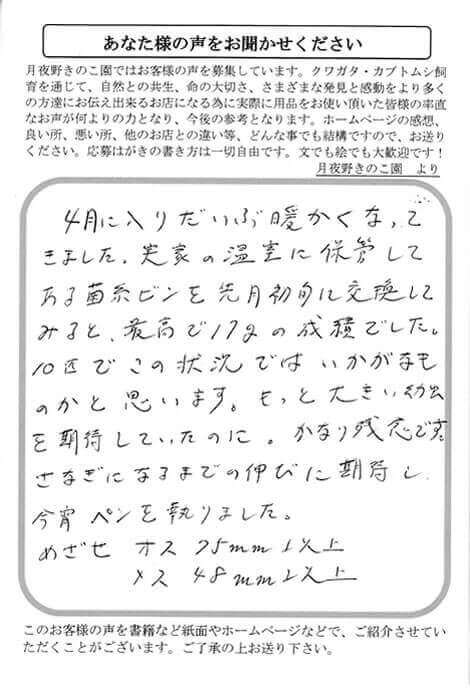 あなた様の声をお聞かせください
月夜野きのこ園ではお客様の声を募集しています。クワガタ・カブトムシ飼
育を通じて、自然との共生、命の大切さ、さまざまな発見と感動をより多く
の方達にお伝え出来るお店になる為に実際に用品をお使い頂いた皆様の率直
なお声が何よりの力となり、今後の参考となります。ホームページの感想、
良い所、悪い所、他のお店との違い等、どんな事でも結構ですので、お送り
ください。応募はがきの書き方は一切自由です。文でも絵でも大歓迎です！
月夜野きのこ園　より
4月に入りだいぶ暖かくなって
きました。実家の温室に保管して
ある菌糸ビンを先月初旬に交換して
みると、最高で17gの成績でした。
10匹でこの状況ではいかがなも
のかと思います。もっと大きい幼虫
を期待していたのに。かなり残念です。
さなぎになるまでの伸びに期待し
今宵ペンを執りました。
めざせ オス 75mm以上
メス 48mm以上
このお客様の声を書籍など紙面やホームページなどで、ご紹介させてい
ただくことがございます。ご了承の上お送り下さい。